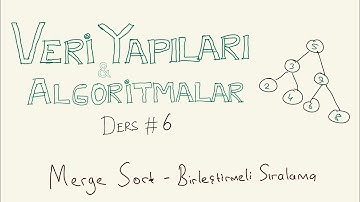 VERİ YAPILARI
&
ALGORİTMALAR
DERS #6
5
3
2
4
6
8
Merge Sort - Birleştirmeli Sıralama